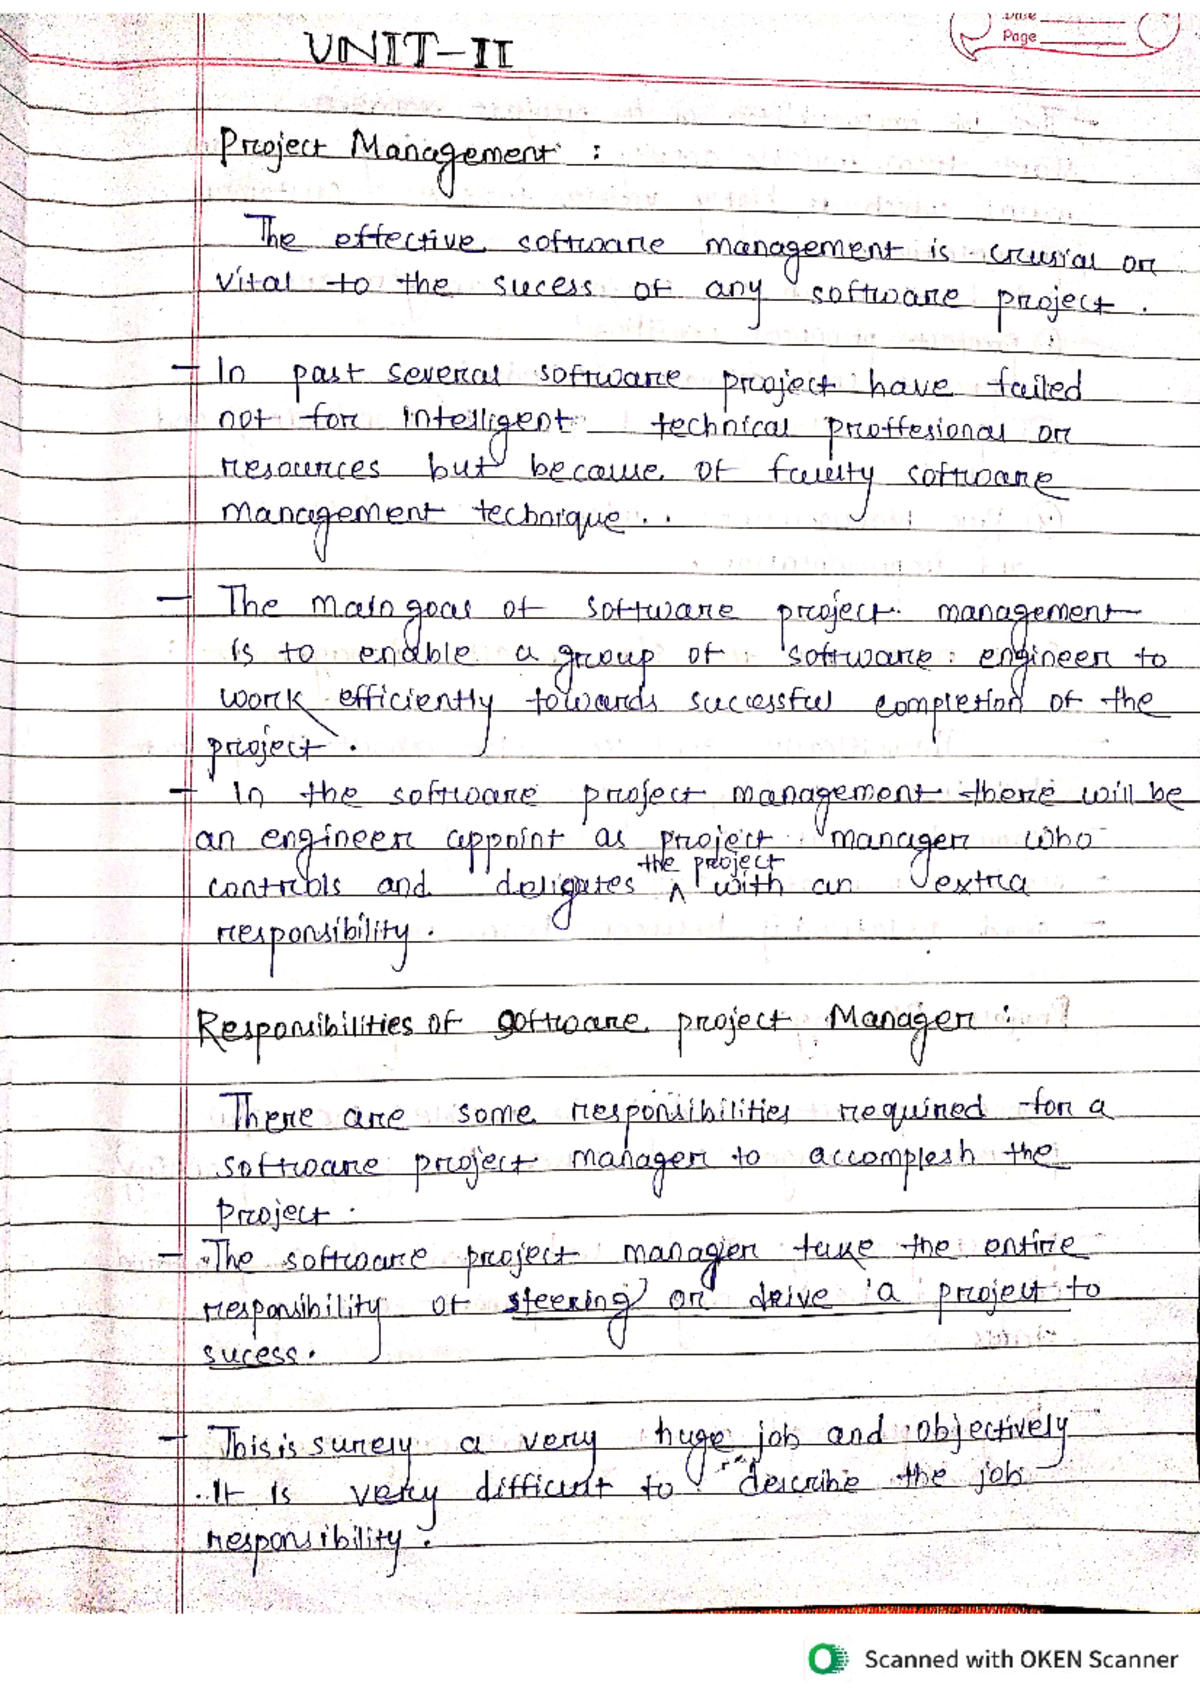 Date
Page
UNIT-II
Project Management :
The effective software management is crusial or
vital to the sucess of any software project.
- In past several software project have failed
not for intelligent technical proffesional or
resources but because of faulty software
management technique..
- The main goal of software project management
is to enable a group of software engineer to
work efficiently towards successful completion of the
project.
- In the software project management there will be
an engineer appoint as project manager who
controls and deligates the project with an extra
responsibility.
Responsibilities of software project Manager :
There are some responsibilities required for a
software project manager to accomplesh the
project.
- The software project manager take the entire
responsibility of steering or drive a project to
sucess.
- This is surely a very huge job and objectively
It is very difficult to describe the job
responsibility.
Scanned with OKEN Scanner